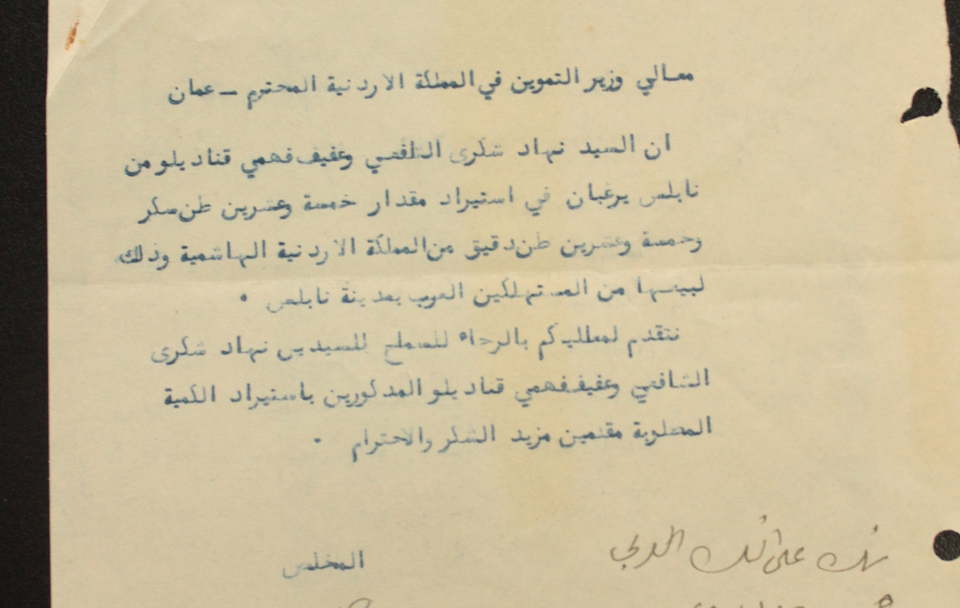 معالي وزير التموين في المملكة الاردنية المحترم ــ عمان
ان السيد نهاد شكرى الشافعي وعفيف فهمي قناديلو من
نابلس يرغبان في استيراد مقدار خمسة وعشرين طن سكر
وخمسة وعشرين طن دقيق من المملكة الاردنية الهاشمية وذلك
لبيعها من المستهلكين العرب بمدينة نابلس .
نتقدم لمعاليكم بالرجاء للسماح للسيدين نهاد شكرى
الشافعي وعفيف فهمي قناديلو المذكورين باستيراد الكمية
المطلوبة مقدمين مزيد الشكر والاحترام .
المخلص